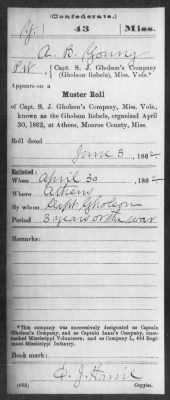 (Confederate.)
Y. 43 Miss.
A. B. Young
Pvt, { Capt. S. J. Gholson's Company,
(Gholson Rebels), Miss. Vols.*
Appears on a
Muster Roll
of Capt. S. J. Gholson's Company, Miss. Vols.,
known as the Gholson Rebels, organized April
30, 1862, at Athens, Monroe County, Miss.
Roll dated
June 3, 1862.
Enlisted:
When April 30, 1862.
Where Athens
By whom Capt. Gholson
Period 3 years or the war
Remarks:
*This company was successively designated as Captain
Gholson's Company, and as Captain
Mississippi Volunteers; and as Company L, 43d Regi-
ment Mississippi Infantry.
Book mark:
(642)
Copyist.